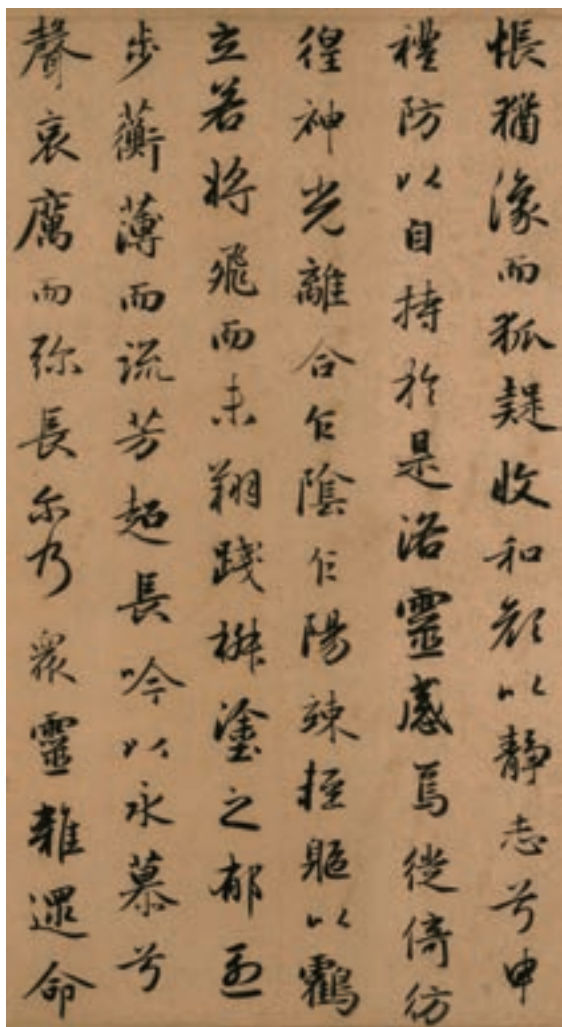 悵猶豫而狐疑收和顏以靜志兮申
禮防以自持於是洛靈感焉徙倚彷
徨神光離合乍陰乍陽竦輕軀以鶴
立若將飛而未翔踐椒塗之郁烈
步蘅薄而流芳超長吟以永慕兮
聲哀厲而弥長尓乃衆靈雜遝命